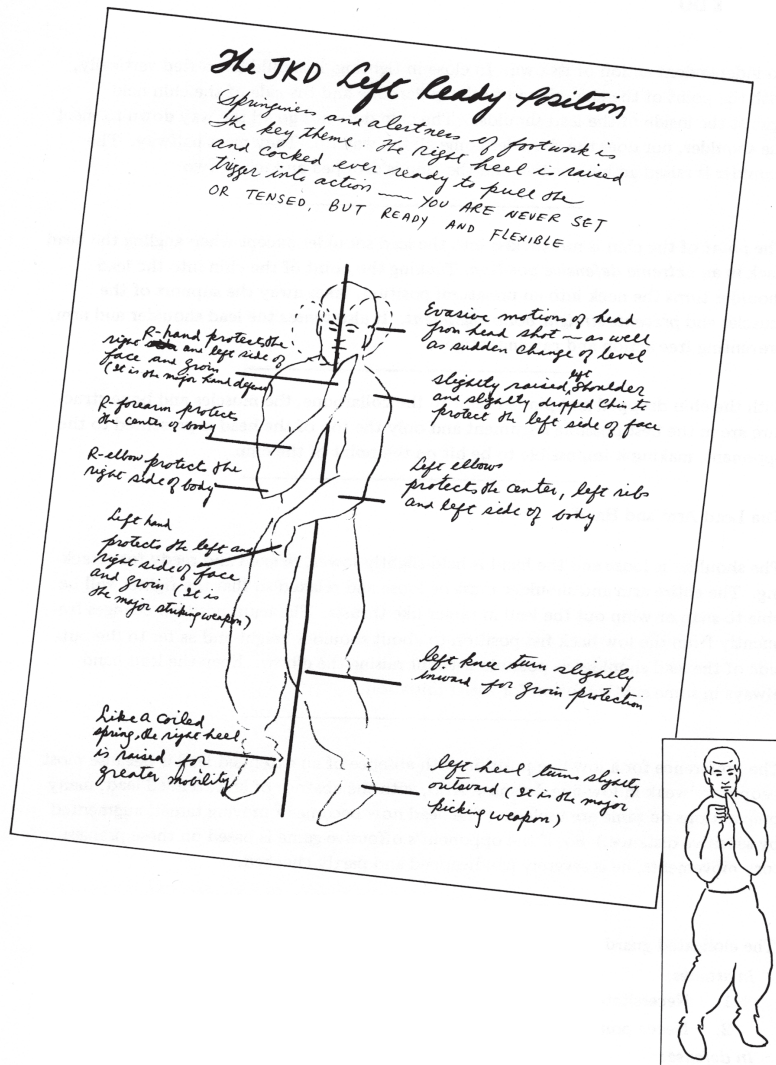 The JKD Left Ready Position
Springiness and alertness of footwork is
the key theme. The right heel is raised
and cocked ever ready to pull the
trigger into action — YOU ARE NEVER SET
OR TENSED, BUT READY AND FLEXIBLE
R-hand protect the
right and left side of
face and groin
(It is the major hand defense)
R-forearm protect
the center of body
R-elbow protect the
right side of body
Left hand
protects the left and
right side of face
and groin (It is
the major striking weapon)
Like a coiled
spring, the right heel
is raised for
greater mobility
Evasive motions of head
from head shot — as well
as sudden change of level
slightly raised left shoulder
and slightly dropped chin to
protect the left side of face
Left elbows
protects the center, left ribs
and left side of body
left knee turn slightly
inward for groin protection
left heel turns slightly
outward (It is the major
kicking weapon)